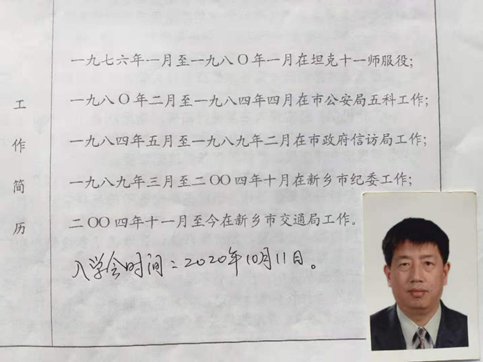 工作简历
一九七六年一月至一九八〇年一月在坦克十一师服役;
一九八〇年二月至一九八四年四月在市公安局五科工作;
一九八四年五月至一九八九年二月在市政府信访局工作;
一九八九年三月至二〇〇四年十月在新乡市纪委工作;
二〇〇四年十一月至今在新乡市交通局工作。
入学会时间:2020年10月11日。